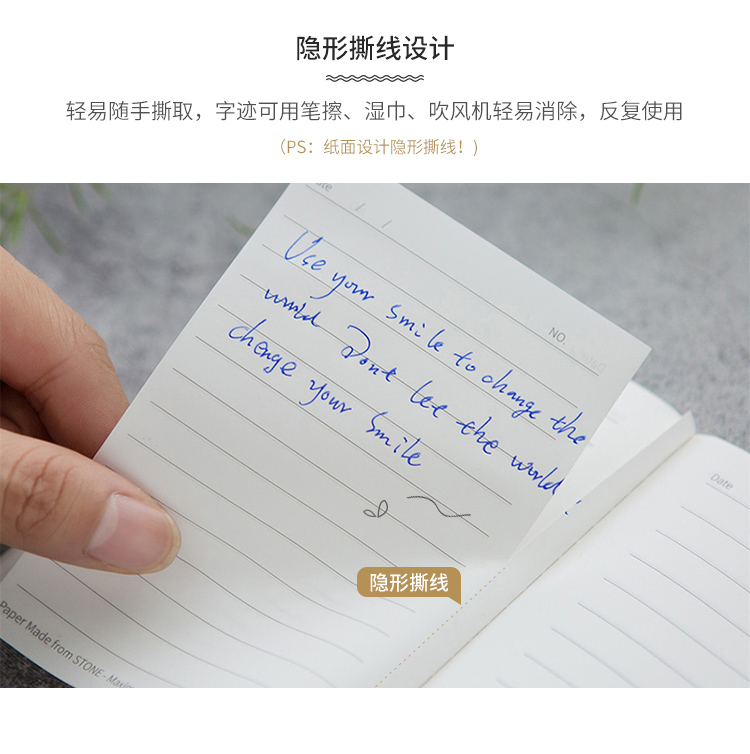 隐形撕线设计
轻易随手撕取，字迹可用笔擦、湿巾、吹风机轻易消除，反复使用
（PS：纸面设计隐形撕线！)
NO.
Use your smile to change the
world Don't let the world!
change your smile
隐形撕线
Date
Paper Made from STONE -